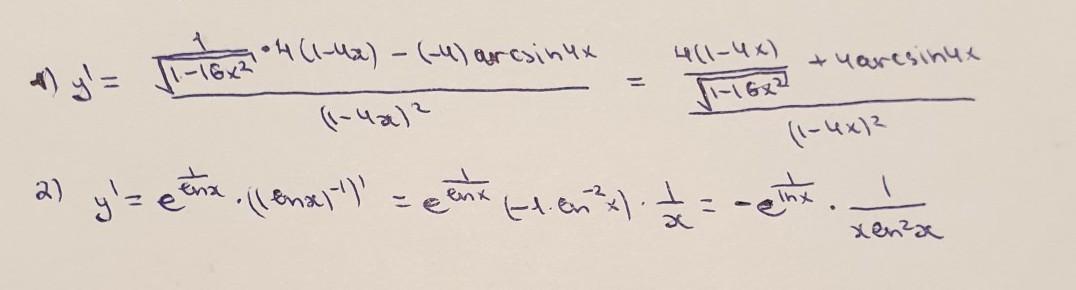 1) y' = (1/√(1-16x²) · 4(1-4x) - (-4) arcsin4x) / (1-4x)² = (4(1-4x)/√(1-16x²) + 4arcsin4x) / (1-4x)²
2) y' = e^(1/lnx) · ((lnx)⁻¹)' = e^(1/lnx) (-1 · ln⁻²x) · 1/x = -e^(1/lnx) · 1/(xln²x)